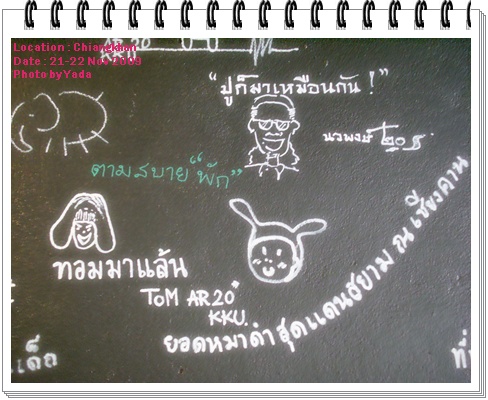 Location : Chiangkhan
Date : 21-22 Nov 2009
Photo by Yada
"ปูก็มาเหมือนกัน !"
นวพงษ์
ตามสบาย "พัก"
ทอมมาแล้น
TOM AR20"
KKU.
ยอดหมาดำสุดแดนสยาม ณ เชียงคาน